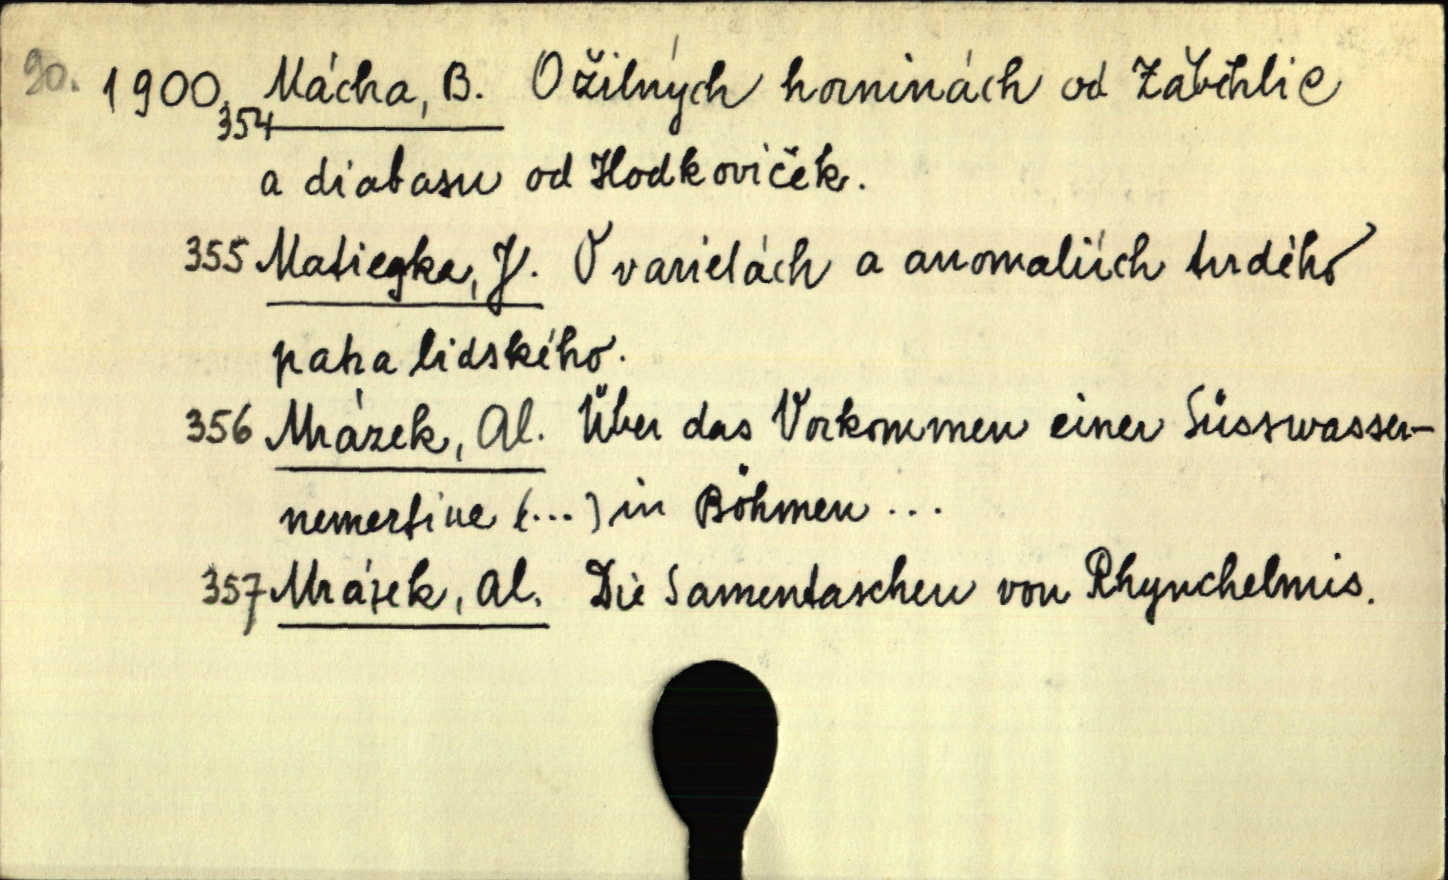 90. 1900, Mácha, B. O žilných horninách od Záběhlic
354
a diabasu od Hodkoviček.
355 Matiegka, J. O varietách a anomaliích tvrdého
patra lidského.
356 Mrázek, Al. Über das Vorkommen einer Süsswasser-
nemertine (...) in Böhmen ...
357 Mrázek, Al. Die Samentaschen von Rhynchelmis.